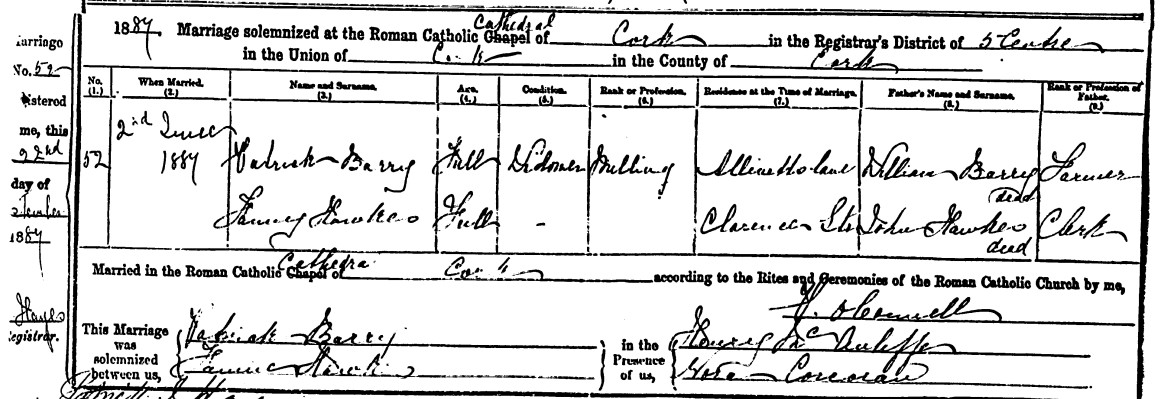 Cathedral
1887. Marriage solemnized at the Roman Catholic Chapel of Cork in the Registrar's District of 5 Centre
in the Union of Cork in the County of Cork
arriage
No. 52
istered
me, this
22nd
day of
1887
Hayes
egistrar.
No. (1.) When Married. (2.) Name and Surname. (3.) Age. (4.) Condition. (5.) Rank or Profession. (6.) Residence at the Time of Marriage. (7.) Father's Name and Surname. (8.) Rank or Profession of Father. (9.)
2nd June
52 1887 Patrick Barry Full Widower Milling William Barry Farmer
dead
Fanny Hawkes Full - Clarence St John Hawkes Clerk
dead
Cathedral
Married in the Roman Catholic Chapel of Cork according to the Rites and Ceremonies of the Roman Catholic Church by me,
O'Connell
This Marriage was solemnized between us,
Patrick Barry
Fannie Hawkes
in the Presence of us,
Henry McAuliffe
Nora Corcoran